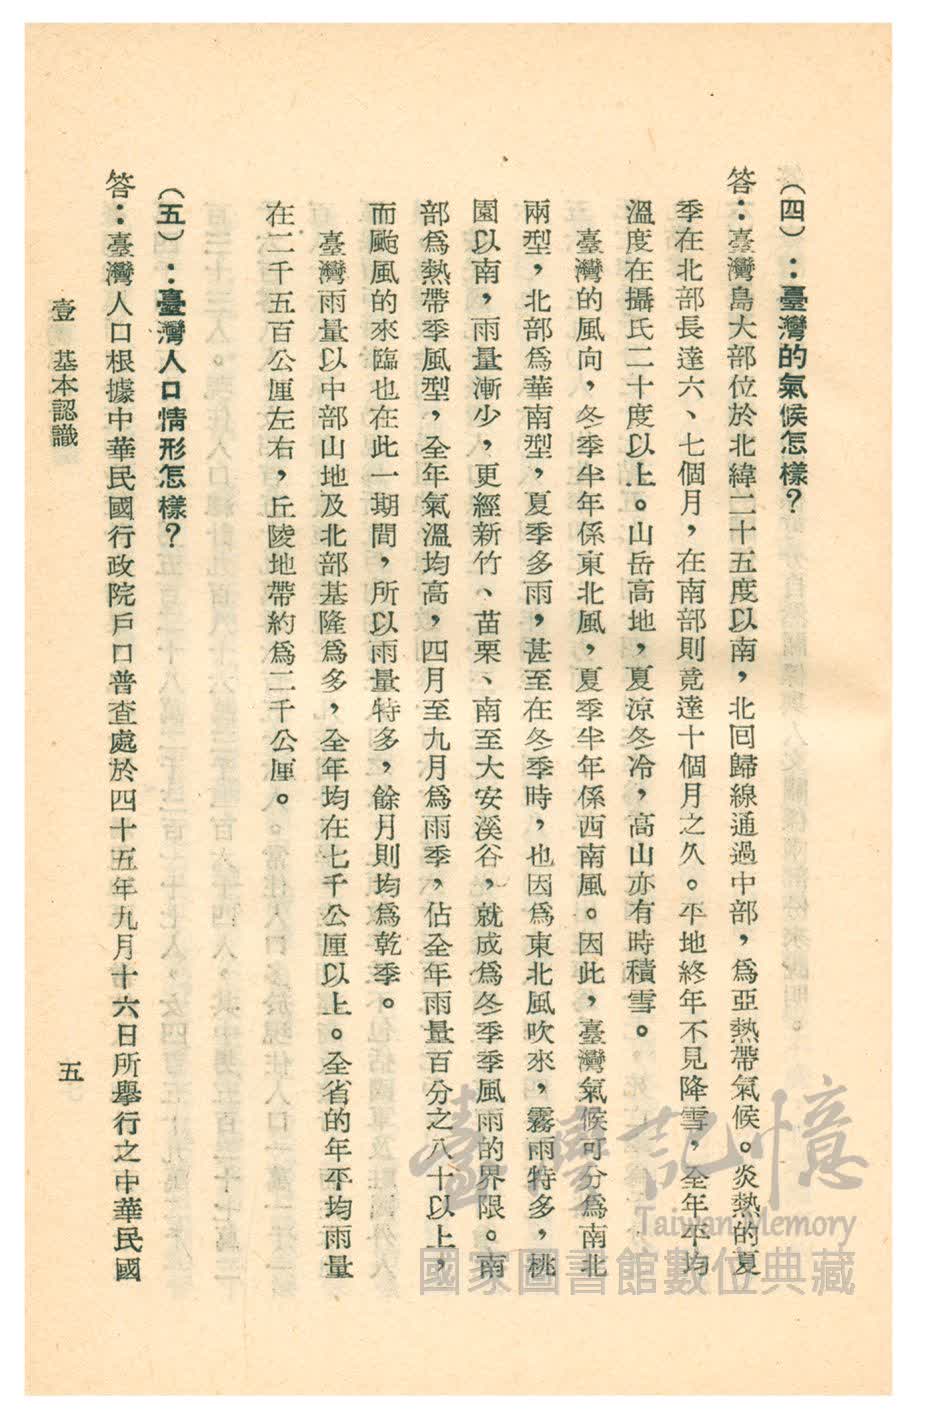 (四)：臺灣的氣候怎樣？
答：臺灣島大部位於北緯二十五度以南，北回歸線通過中部，爲亞熱帶氣候。炎熱的夏
季在北部長達六、七個月，在南部則竟達十個月之久。平地終年不見降雪，全年平均
溫度在攝氏二十度以上。山岳高地，夏涼冬冷，高山亦有時積雪。
臺灣的風向，冬季半年係東北風，夏季半年係西南風。因此，臺灣氣候可分爲南北
兩型，北部爲華南型，夏季多雨，甚至在冬季時，也因爲東北風吹來，霧雨特多，桃
園以南，雨量漸少，更經新竹、苗栗、南至大安溪谷，就成爲冬季季風雨的界限。南
部爲熱帶季風型，全年氣溫均高，四月至九月爲雨季，佔全年雨量百分之八十以上，
而颱風的來臨也在此一期間，所以雨量特多，餘月則均爲乾季。
臺灣雨量以中部山地及北部基隆爲多，全年均在七千公厘以上。全省的年平均雨量
在二千五百公厘左右，丘陵地帶約爲二千公厘。
(五)：臺灣人口情形怎樣？
答：臺灣人口根據中華民國行政院戶口普查處於四十五年九月十六日所舉行之中華民國
壹　基本認識
五
臺灣記憶
Taiwan Memory
國家圖書館數位典藏